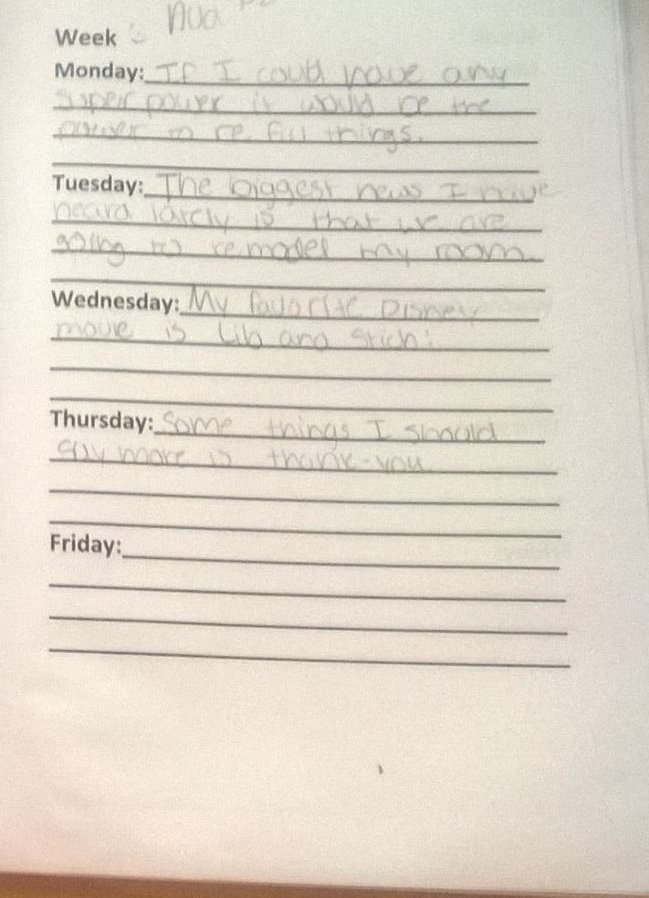 Week
Monday: If I could have any
super power it would be the
power to re fill things.
Tuesday: The biggest news I have
heard lately is that we are
going to remodel my room
Wednesday: My favorite Disney
movie is lilo and stich!
Thursday: Some things I should
say more is thank-you
Friday: